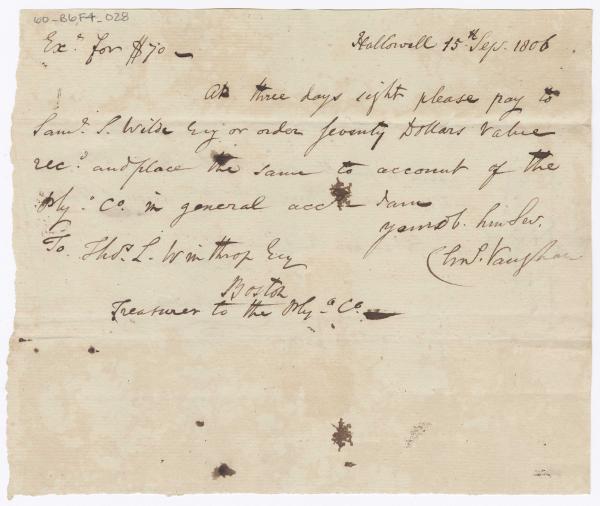 60-B6F4-028
Exa. for $70 — Hallowell 15th Sep. 1806
At three days sight please pay to
Saml. S. Wilde Esq or order Seventy Dollars Value
recd. and place the same to account of the
Ply.o Co. in general acct I am
To yours ob. hm Ser.
Thos. L. Winthrop Esq Chas. Vaughan
Boston
Treasurer to the Ply.o Co.